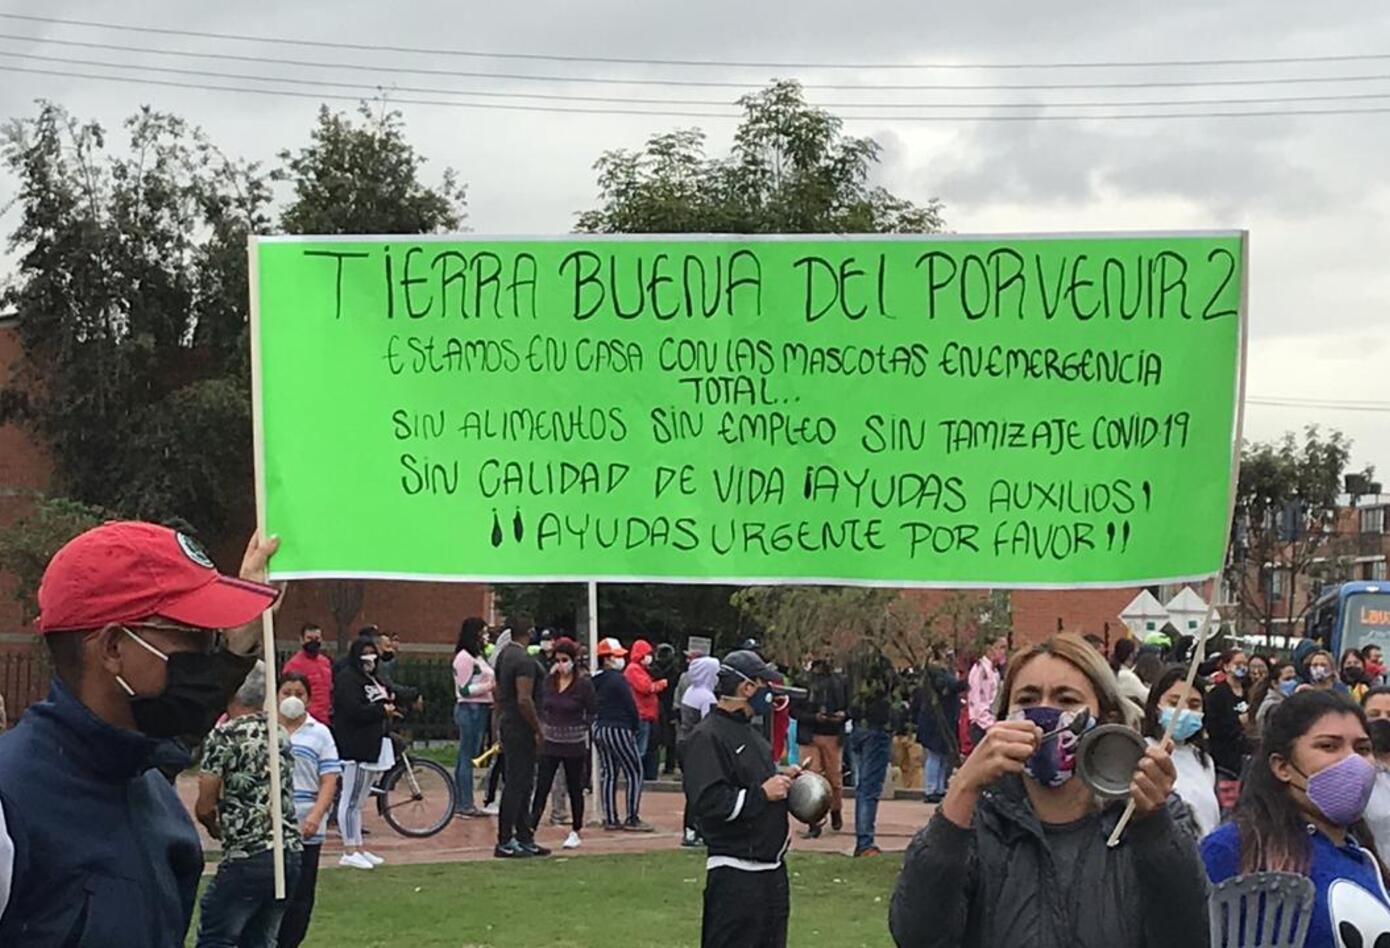 TIERRA BUENA DEL PORVENIR 2
ESTAMOS EN CASA CON LAS MASCOTAS EN EMERGENCIA
TOTAL...
SIN ALIMENTOS SIN EMPLEO SIN TAMIZAJE COVID 19
SIN CALIDAD DE VIDA ¡AYUDAS AUXILIOS!
¡¡AYUDAS URGENTE POR FAVOR!!